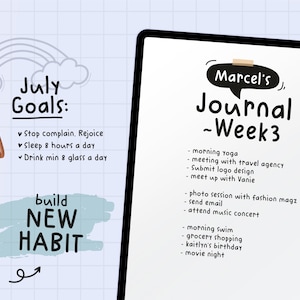 July
Goals:
♥ Stop complain. Rejoice
♥ Sleep 8 hours a day
♥ Drink min 8 glass a day
build
NEW
HABIT
Marcel's
Journal
~Week3
- morning yoga
- meeting with travel agency
- submit logo design
- meet up with Vanie
- photo session with fashion magz
- send email
- attend music concert
- morning swim
- grocery shopping
- kaitlyn's birthday
- movie night